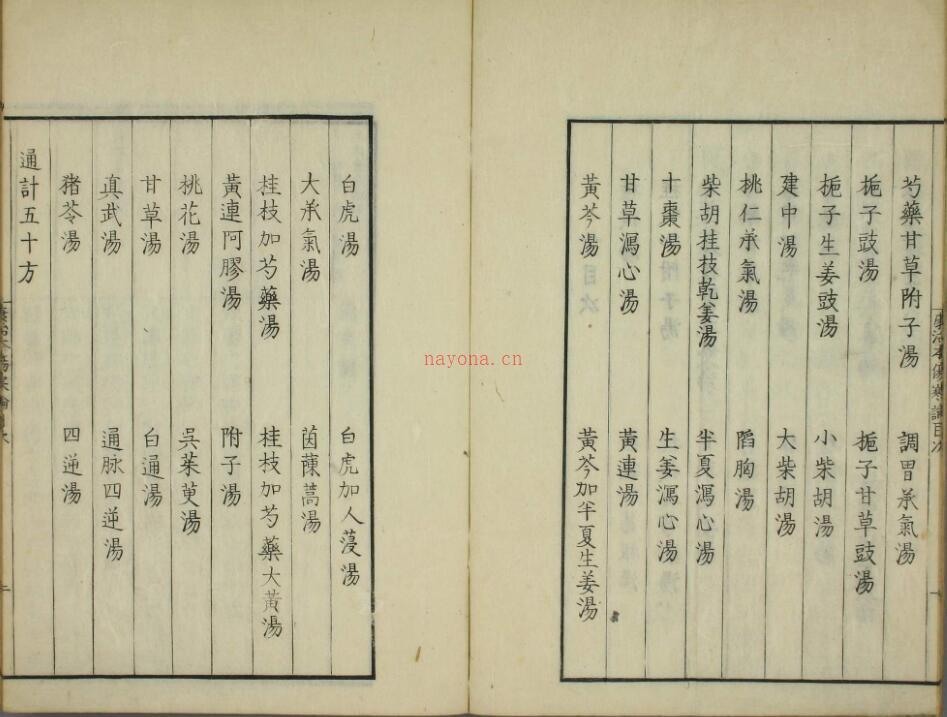 芍藥甘草附子湯 調胃承氣湯
梔子豉湯 梔子甘草豉湯
梔子生姜豉湯 小柴胡湯
建中湯 大柴胡湯
桃仁承氣湯 陷胸湯
柴胡桂枝乾姜湯 半夏瀉心湯
十棗湯 生姜瀉心湯
甘草瀉心湯 黃連湯
黃芩湯 黃芩加半夏生姜湯
白虎湯 白虎加人蓡湯
大承氣湯 茵蔯蒿湯
桂枝加芍藥湯 桂枝加芍藥大黃湯
黃連阿膠湯 附子湯
桃花湯 吳茱萸湯
甘草湯 白通湯
真武湯 通脉四逆湯
猪苓湯 四逆湯
通計五十方
康治本傷寒論目次
nayona.cn